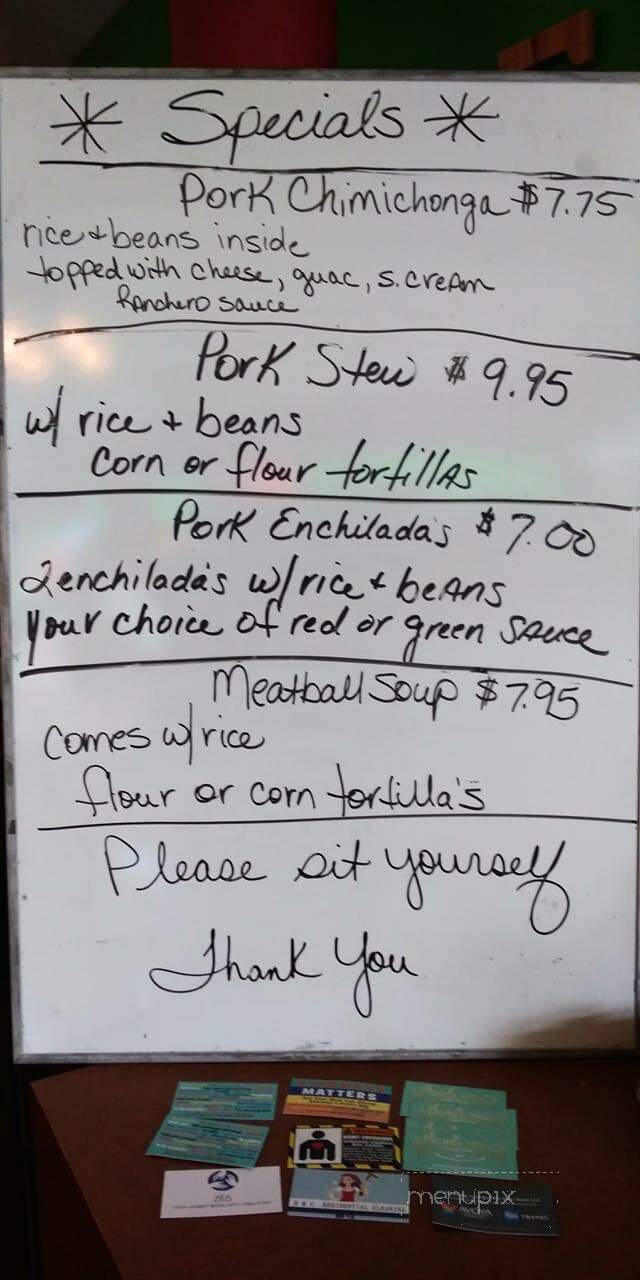 * Specials *
Pork Chimichonga $7.75
rice + beans inside
topped with cheese, guac, s. cream
Ranchero sauce
Pork Stew $9.95
w/ rice + beans
corn or flour tortillas
Pork Enchilada's $7.00
2 enchilada's w/ rice + beans
your choice of red or green sauce
Meatball Soup $7.95
comes w/ rice
flour or corn tortilla's
Please sit yourself
Thank You
MATTERS
RESIDENTIAL CLEANING
menupix
TRAVEL